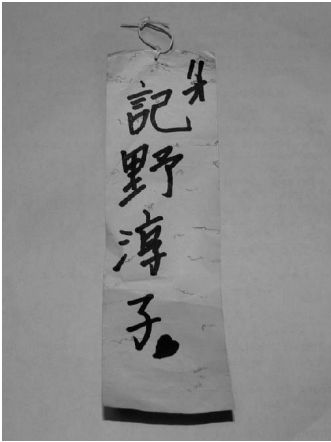 記野淳子